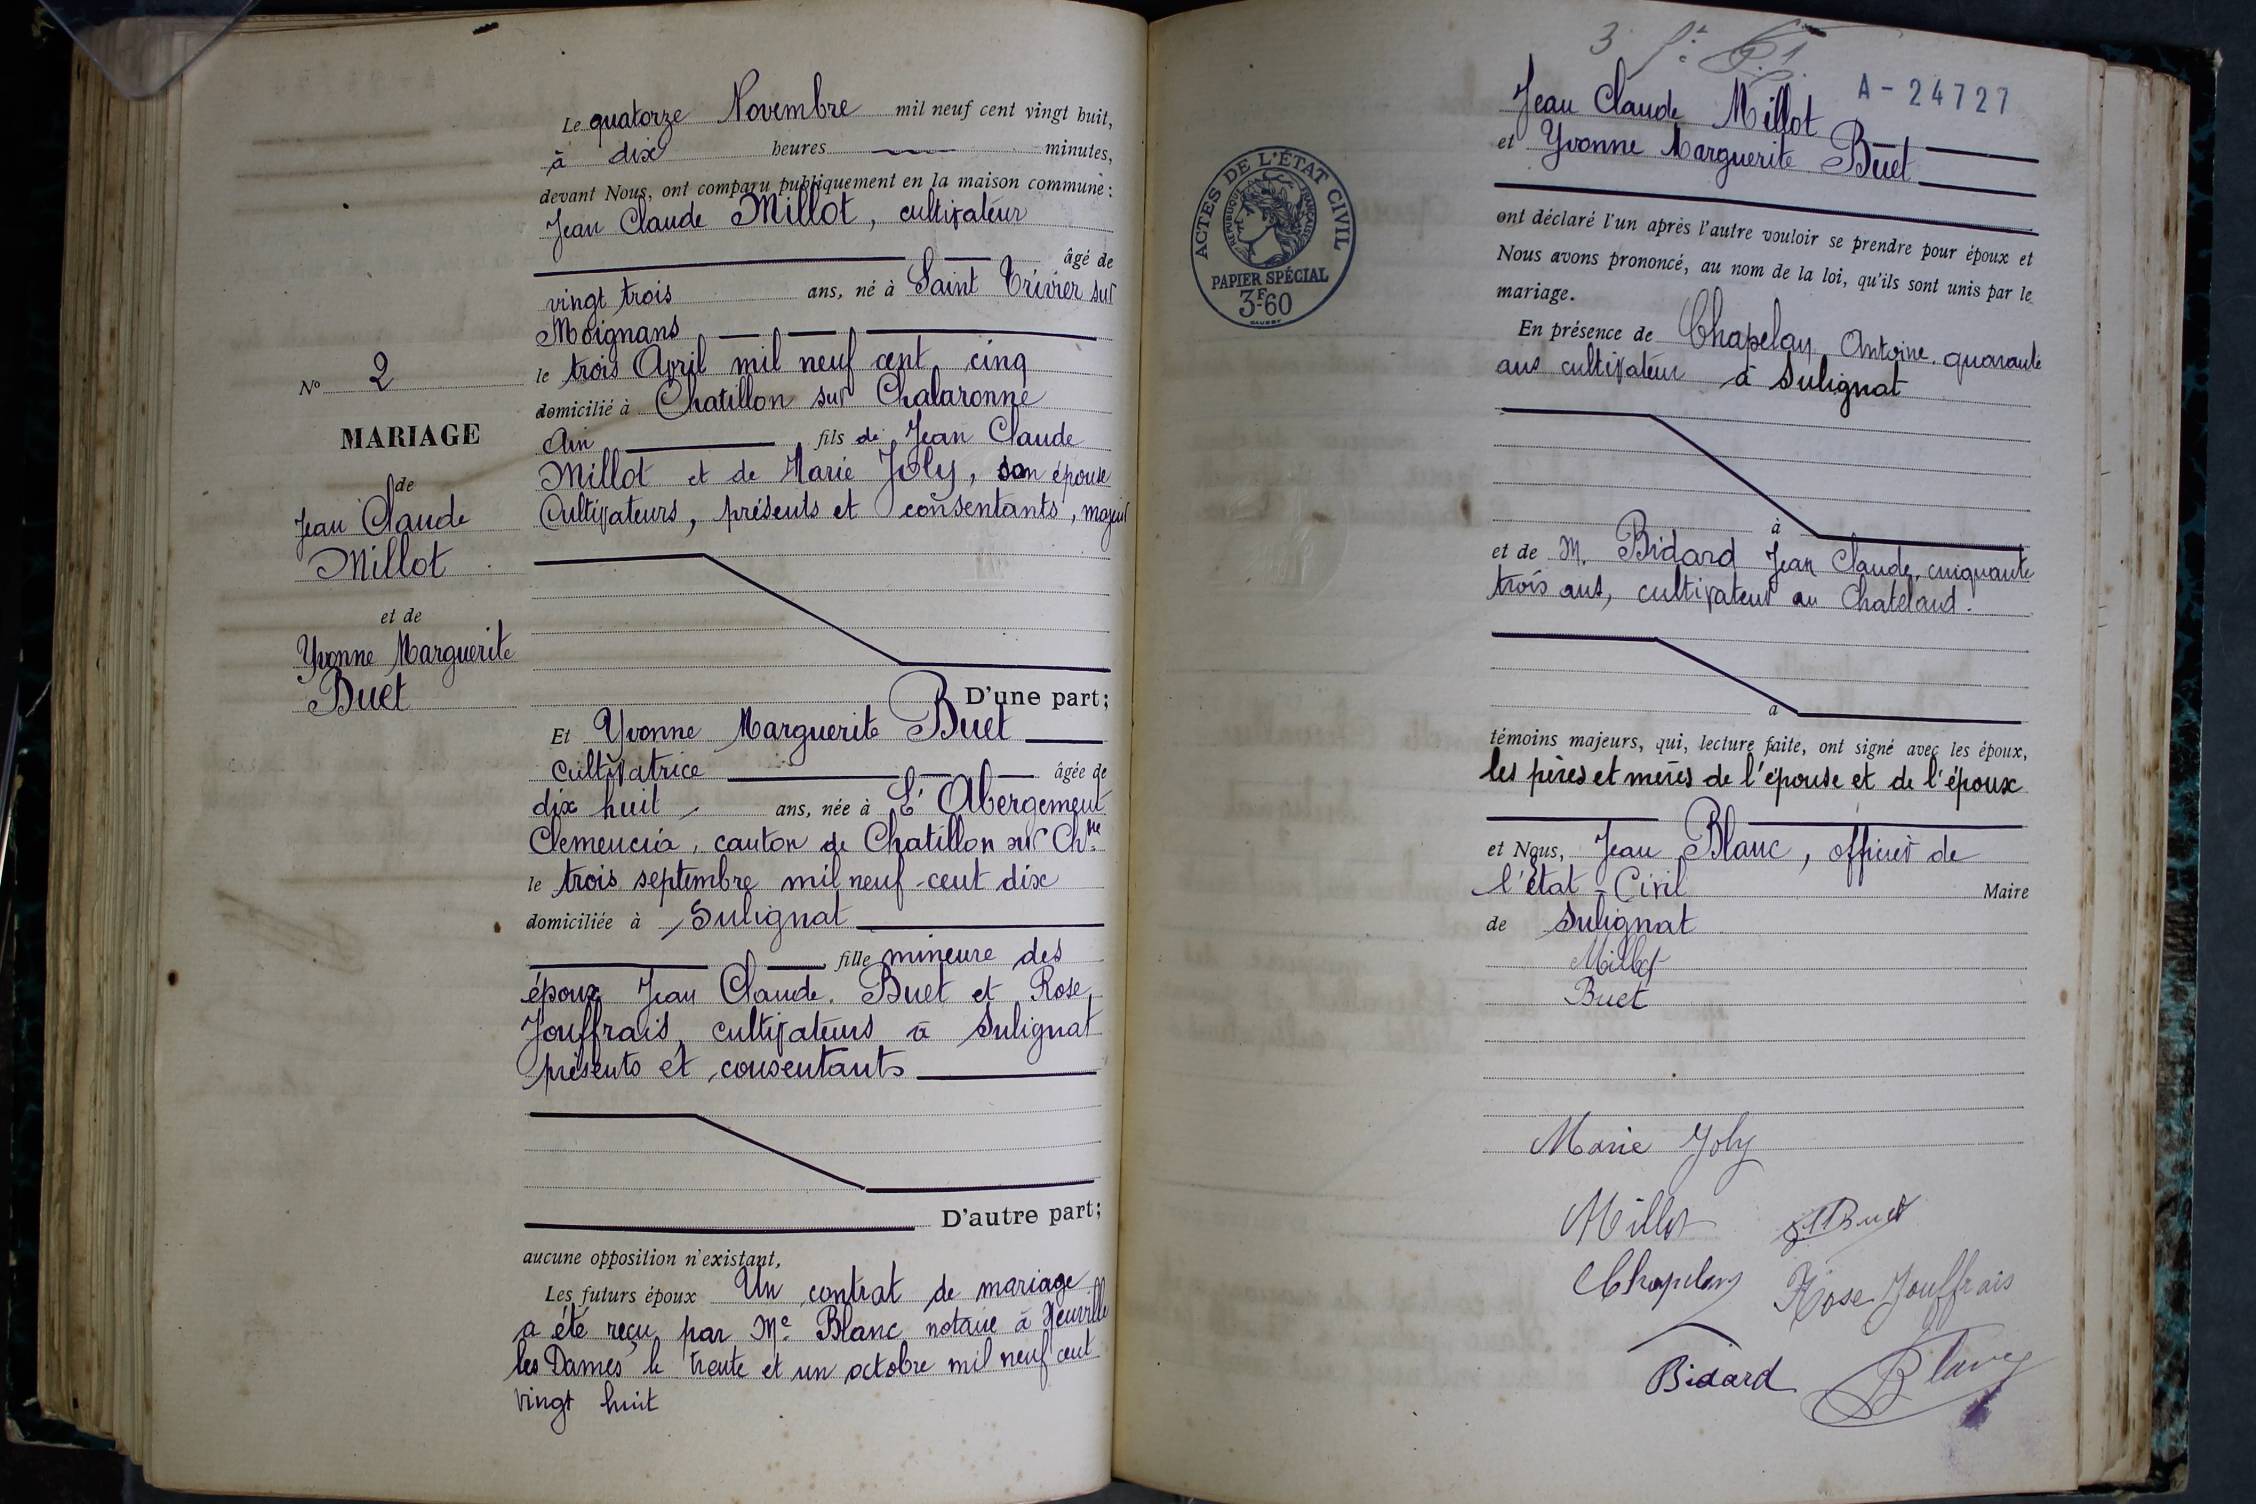 Le quatorze Novembre mil neuf cent vingt huit,
à dix heures minutes,
devant Nous, ont comparu publiquement en la maison commune :
Jean Claude Millot, cultivateur
âgé de
vingt trois ans, né à Saint Trivier sur
Moignans
le trois Avril mil neuf cent cinq
domicilié à Chatillon sur Chalaronne
Ain fils de Jean Claude
Millot et de Marie Joly, son épouse
Cultivateurs, présents et consentants, majeur
No 2
MARIAGE
de
Jean Claude
Millot
et de
Yvonne Marguerite
Buet
D'une part;
Et Yvonne Marguerite Buet
cultivatrice âgée de
dix huit ans, née à L'Abergement
Clemencia, canton de Chatillon sur Chne
le trois septembre mil neuf cent dix
domiciliée à Sulignat
fille mineure des
époux Jean Claude Buet et Rose
Jouffrais, cultivateurs à Sulignat
présents et consentants
D'autre part;
aucune opposition n'existant,
Les futurs époux Un contrat de mariage
a été reçu par Me Blanc notaire à Neuville
les Dames le trente et un octobre mil neuf cent
vingt huit
3
A - 24727
Jean Claude Millot
et Yvonne Marguerite Buet
ACTES DE L'ÉTAT CIVIL
RÉPUBLIQUE FRANÇAISE
PAPIER SPÉCIAL
3F60
ont déclaré l'un après l'autre vouloir se prendre pour époux et
Nous avons prononcé, au nom de la loi, qu'ils sont unis par le
mariage.
En présence de Chapelan Antoine quarante
ans cultivateur à Sulignat
à
et de M. Bidard Jean Claude, cinquante
trois ans, cultivateur au Chatelard.
à
témoins majeurs, qui, lecture faite, ont signé avec les époux,
les pères et mères de l'épouse et de l'époux
et Nous, Jean Blanc, officier de
l'état - Civil Maire
de Sulignat
Millot
Buet
Marie Joly
Millot Buet
Chapelan Rose Jouffrais
Bidard Blanc